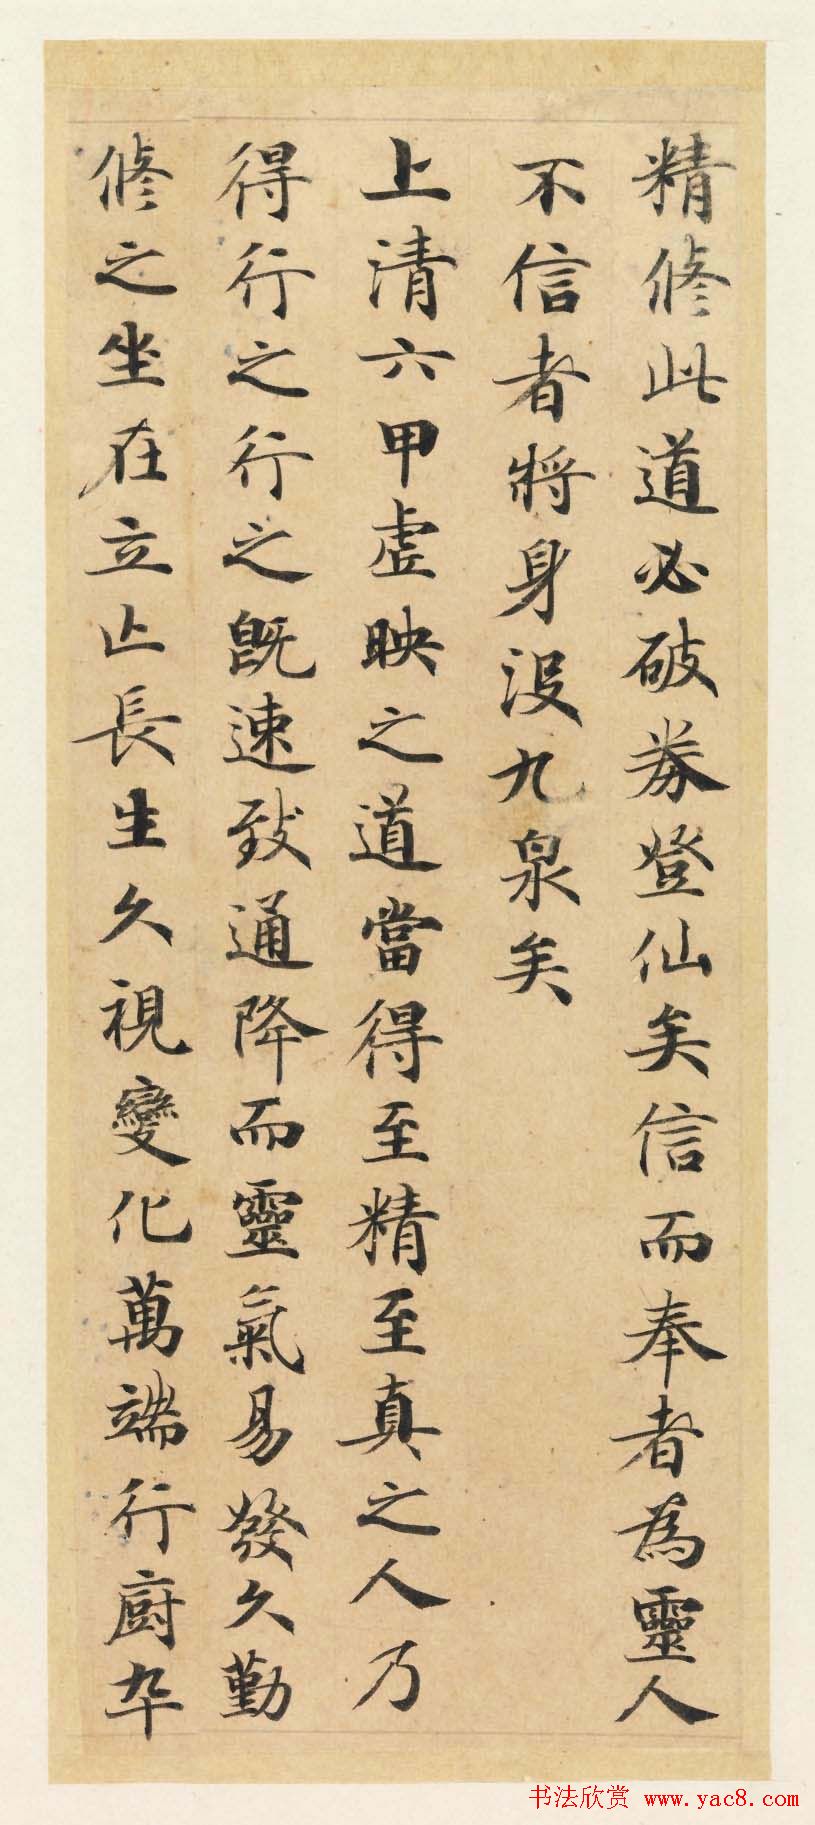 精修此道必破券登仙矣信而奉者為靈人
不信者將身沒九泉矣
上清六甲虛映之道當得至精至真之人乃
得行之行之既速致通降而靈氣易發久勤
修之坐在立亡長生久視變化萬端行廚卒
书法欣赏 www.yac8.com